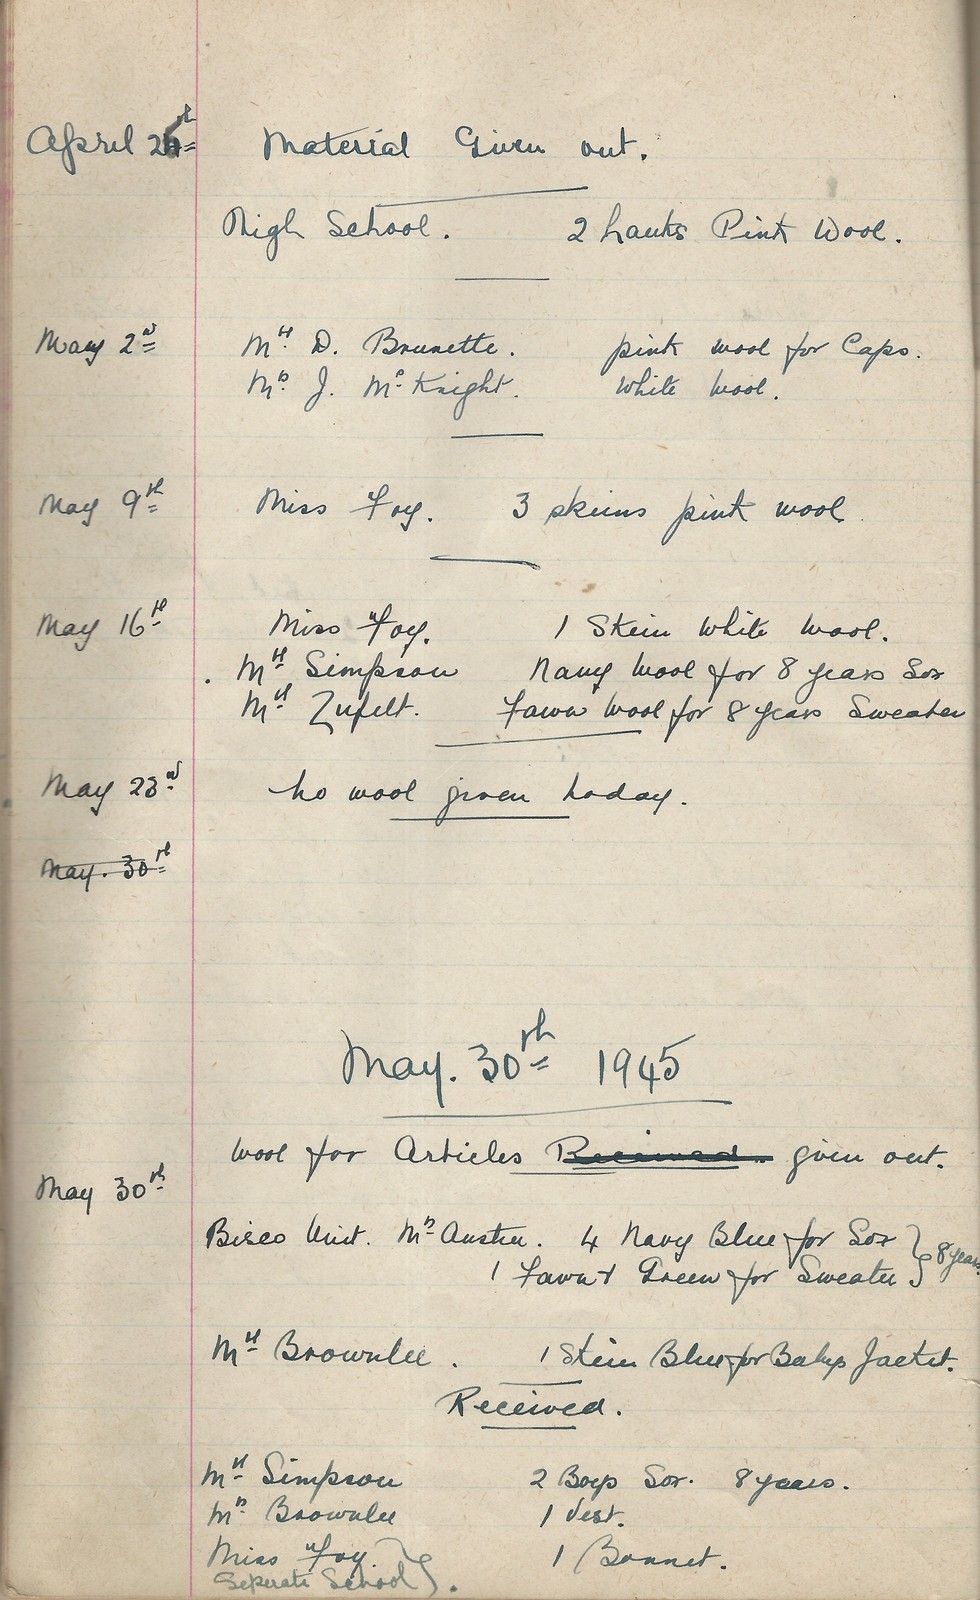 April 25th Material Given out.
High School. 2 hanks Pink Wool.
May 2nd Mrs D. Brunette. pink wool for Caps.
Mrs J. McKnight. White Wool.
May 9th Miss Foy. 3 skeins pink wool.
May 16th Miss Foy. 1 Skein White Wool.
Mrs Simpson Navy Wool for 8 years Sox
Mrs Zufelt. Fawn Wool for 8 years Sweater
May 23rd No wool given today.
May. 30th
May. 30th 1945
Wool for Articles Received given out.
May 30th
Bisco Unit. Mrs Austin. 4 Navy Blue for Sox
1 Fawn & Green for Sweater } 8 years
Mrs Brownlee. 1 Skein Blue for Babys Jacket.
Received.
Mrs Simpson 2 Boys Sox. 8 years.
Mrs Brownlee 1 Vest.
Miss Foy. 1 Bonnet.
Seperate School.